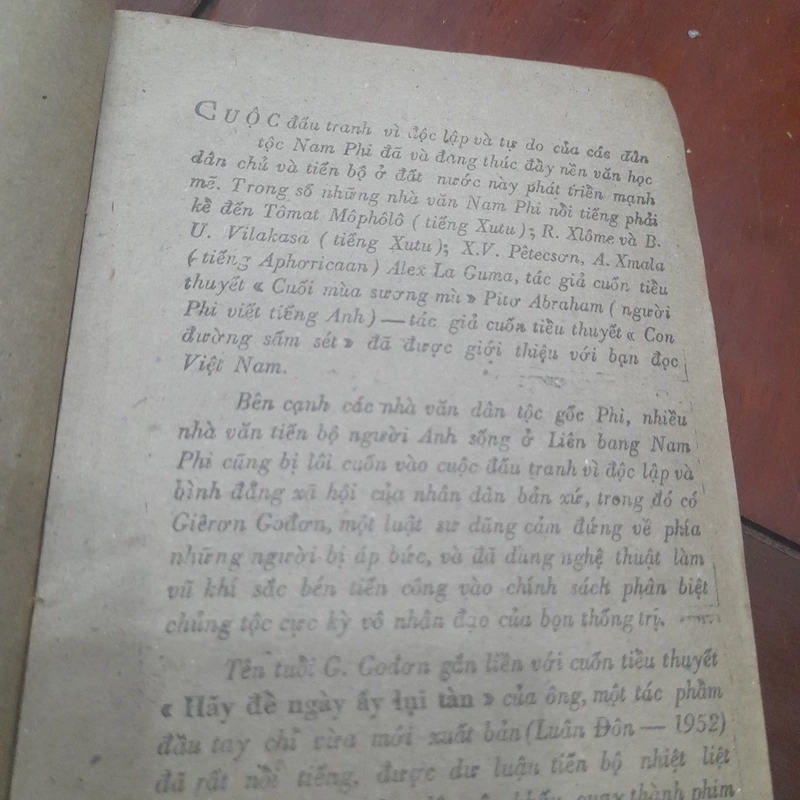 CUỘC đấu tranh vì độc lập và tự do của các dân
tộc Nam Phi đã và đang thúc đẩy nền văn học
dân chủ và tiến bộ ở đất nước này phát triển mạnh
mẽ. Trong số những nhà văn Nam Phi nổi tiếng phải
kể đến Tômat Môphôlô (tiếng Xutu); R. Xlôme và B.
U. Vilakasa (tiếng Xutu); X.V. Pêtecsơn, A. Xmala
(tiếng Aphơricaan) Alex La Guma, tác giả cuốn tiểu
thuyết « Cuối mùa sương mù » Pitơ Abraham (người
Phi viết tiếng Anh) — tác giả cuốn tiểu thuyết « Con
đường sấm sét » đã được giới thiệu với bạn đọc
Việt Nam.
Bên cạnh các nhà văn dân tộc gốc Phi, nhiều
nhà văn tiến bộ người Anh sống ở Liên bang Nam
Phi cũng bị lôi cuốn vào cuộc đấu tranh vì độc lập và
bình đẳng xã hội của nhân dân bản xứ, trong đó có
Giêrơn Gođơn, một luật sư dũng cảm đứng về phía
những người bị áp bức, và đã dùng nghệ thuật làm
vũ khí sắc bén tiến công vào chính sách phân biệt
chủng tộc cực kỳ vô nhân đạo của bọn thống trị.
Tên tuổi G. Gođơn gắn liền với cuốn tiểu thuyết
« Hãy để ngày ấy lụi tàn » của ông, một tác phẩm
đầu tay chỉ vừa mới xuất bản (Luân Đôn — 1952)
đã rất nổi tiếng, được dư luận tiến bộ nhiệt liệt
quay thành phim